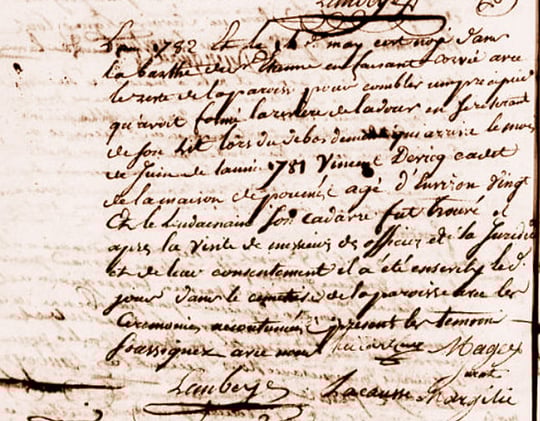 Lauberge
L'an 1782 et le may est noyé dans
la barthe du en faisant corvée avec
le reste de la paroisse pour combler un precipice
qu'avoit formé la riviere de ladour en se retirant
de son lit lors du debordement qui arriva le mois
de juin de l'année 1781 Vincent Dericq cadet
de la maison de agé d'environ vingt
et le lendemain son cadavre fut trouvé et
apres la visite de messieurs les officiers de la Juridi
et de leur consentement il a été enseveli le d.
jour dans le cemetiere de la paroisse avec les
Ceremonies accoutumées presents les temoins
soassignez avec nous Mages
Lauberge Lacausse Margelie